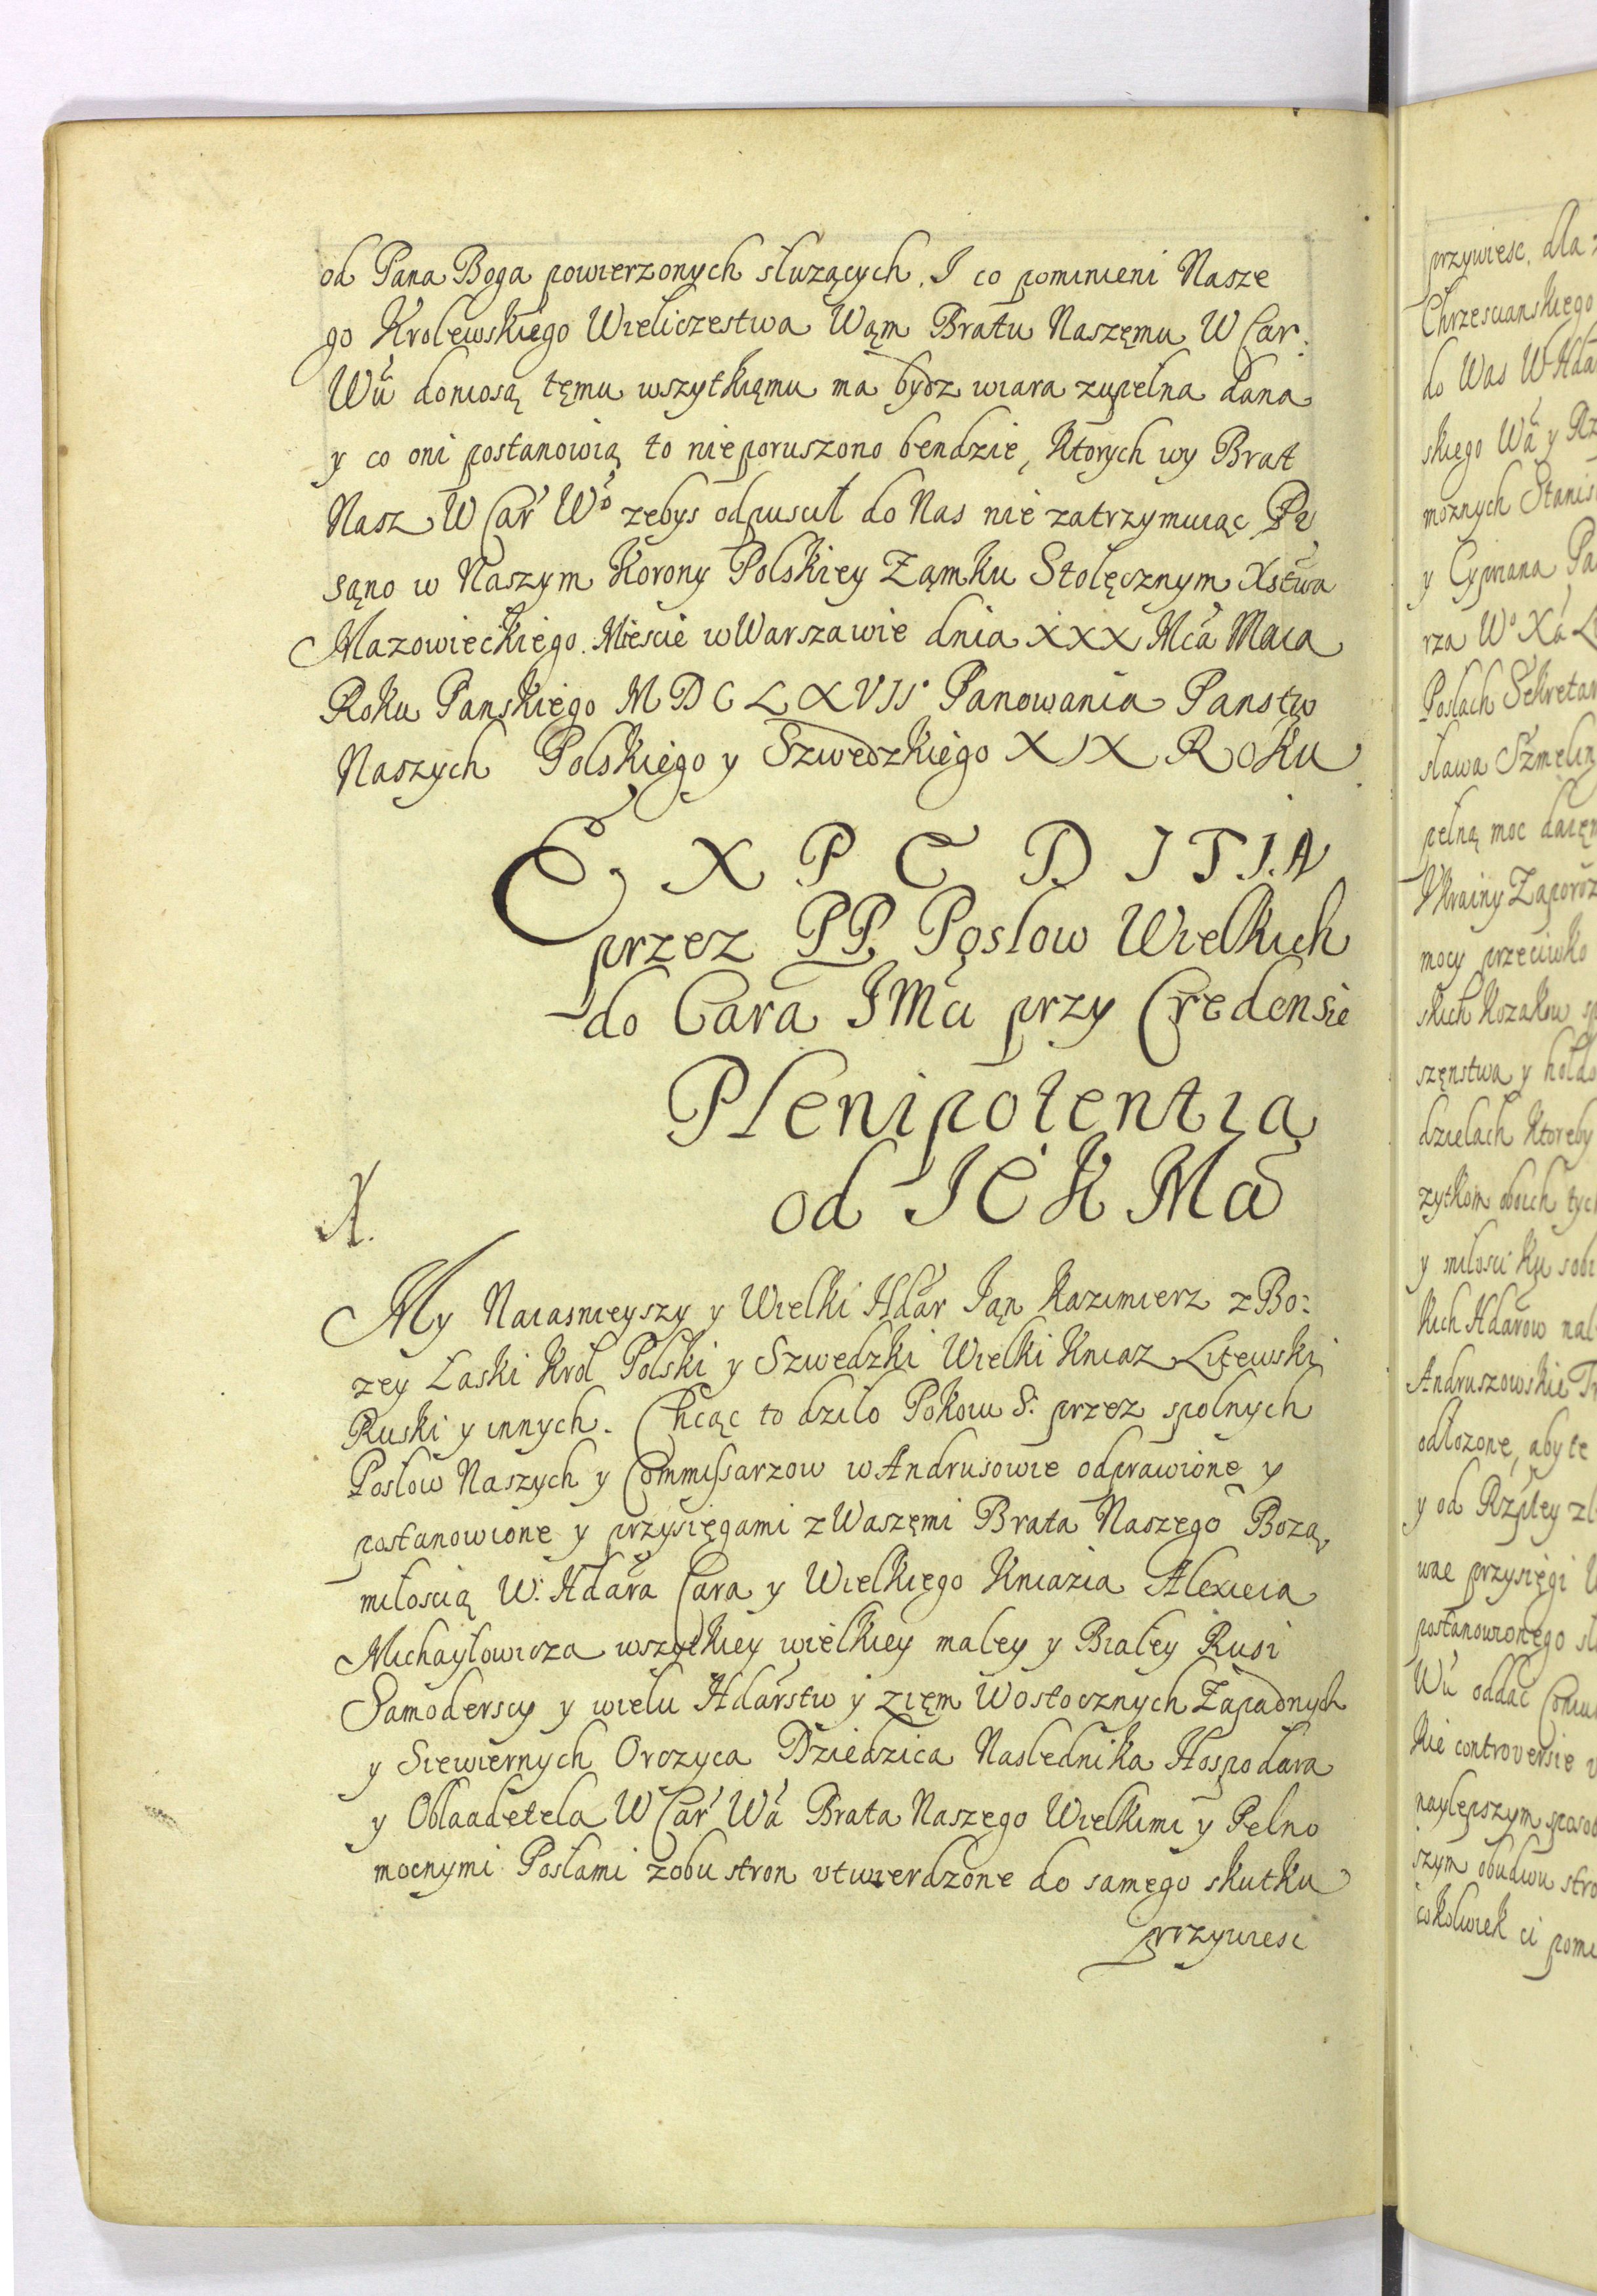 od Pana Boga powierzonych służących. I co pominieni Nasze
go Krolewskiego Wieliczestwa Wąm Bratu Naszęmu W Car.
Wu doniosą tęmu wszytkięmu ma bydz wiara zupełna dana
y co oni postanowią to nieporuszono bendzie, Ktorych wy Brat
Nasz W Car Wo zebys odpuscił do Nas nie zatrzymuiąc Pi
sąno w Naszym Korony Polskiey Ząmku Stolęcznym Xstwa
Mazowieckiego. Miescie w Warszawie dnia XXX Mca Maia
Roku Panskiego MDCLXVII Panowania Panstw
Naszych Polskiego y Szwedzkiego XIX Roku
EXPEDITIA
przez PP. Posłow Wielkich
do Cara IMci przy Credensie
Plenipotentia
od IE K Ma
A.
My Naiasnieyszy y Wielki Hdar Ian Kazimierz z Bo:
zey Łaski Krol Polski y Szwedzki Wielki Kniaz Litewski
Ruski y innych. Chcąc to dziło Pokoiu S. przez spolnych
Posłow Naszych y Commissarzow w Andrusowie odprawione y
postanowione y przysięgami z Waszęmi Brata Naszego Bozą
miłoscią W. Hdara Cara y Wielkiego Kniazia Alexieia
Michayłowicza wszytkiey wielkiey małey y Białey Rusi
Samoderscy y wielu Hdarstw y zięm Wostocznych Zapadnych
y Siewiernych Orczyca Dziedzica Naslednika Hospodara
y Obladetela W Car Wa Brata Naszego Wielkimi y Pełno
mocnymi Posłami z obu stron vtwierdzone do samego skutku
przywiesc
przywiesc, dla
Chrzescianskiego
do Was W Hda
skiego Wa y Rz
moznych Stanis
y Cypriana Pa
rza Wo Xa Li
Posłach Sekretar
sława Szmelin
pełną moc daięm
Vkrainy Zaporoz
mocy przeciwko
skich Kozakow sp
szęnstwa y hołdo
dzielach Ktoreby
zytkom oboich tych
y miłosci Ku sobi
kich Hdarow nal
Andruszowskie Tr
odłozone, aby te
y od Rzptey zl
wae przysięgi
postanowionego sl
Wu oddac
Kie controversie
naylepszym sposob
szym obudwu stro
cokolwiek ci pomi